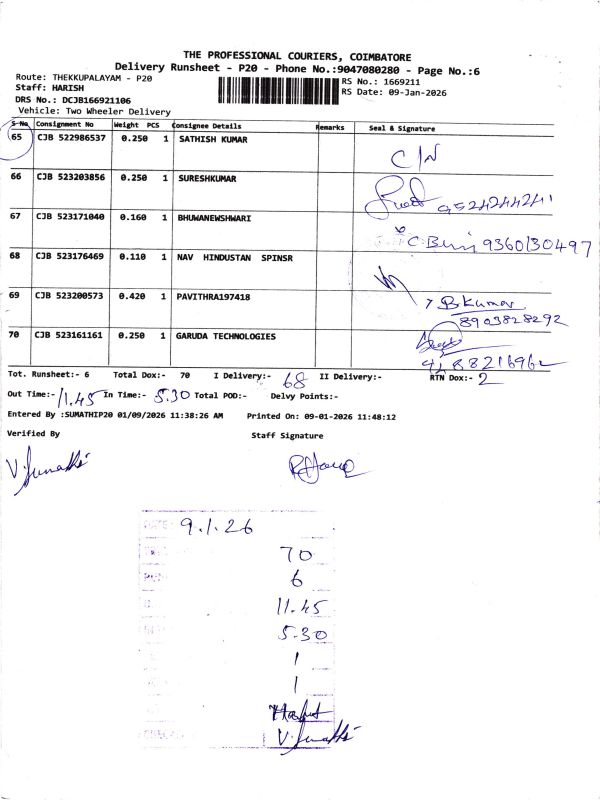 THE PROFESSIONAL COURIERS, COIMBATORE
Delivery Runsheet - P20 - Phone No.:9047080280 - Page No.:6
Route: THEKKUPALAYAM - P20
RS No.: 1669211
Staff: HARISH
RS Date: 09-Jan-2026
DRS No.: DCJB166921106
Vehicle: Two Wheeler Delivery
S No Consignment No Weight PCS Consignee Details Remarks Seal & Signature
65 CJB 522986537 0.250 1 SATHISH KUMAR C/N
66 CJB 523203856 0.250 1 SURESHKUMAR 9524244241
67 CJB 523171040 0.160 1 BHUWANEWSHWARI 9360130497
68 CJB 523176469 0.110 1 NAV HINDUSTAN SPINSR
69 CJB 523200573 0.420 1 PAVITHRA197418 B.Kumar
8903828292
70 CJB 523161161 0.250 1 GARUDA TECHNOLOGIES
Tot. Runsheet:- 6 Total Dox:- 70 I Delivery:- 68 II Delivery:- RTN Dox:- 2
Out Time:- 11.45 In Time:- 5.30 Total POD:- Delvy Points:-
Entered By :SUMATHIP20 01/09/2026 11:38:26 AM Printed On: 09-01-2026 11:48:12
Verified By Staff Signature
DATE: 9.1.26
70
6
11.45
5.30
1
1